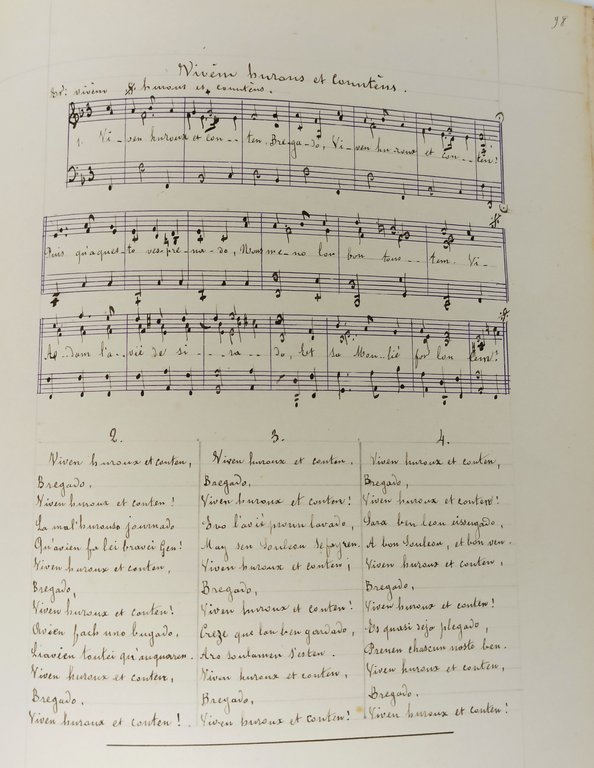 98
Vivèm hurous et Counténs.
vivèm hurous et counténs.
1. Vi-ven huroux et con--ten, Bre-ga-do, Vi-ven hu-roux et con--ten!
Puis qu'aques-to ves-pre-na-do, Nous me-no lou bon tous--tem. Vi-
A--dam l'a-vié de si---ra--do, Et sa Mou-lié for lon tem!
2.
Viven huroux et conten,
Bregado,
Viven huroux et conten!
La mal'hurouso journado
Qu'avien fa lei bravei Gen!
Viven huroux et conten,
Bregado,
Viven huroux et conten!
Avien fach uno bugado,
L'avien toutei qu'auquaren.
Viven huroux et conten,
Bregado,
Viven huroux et conten!
3.
Viven huroux et conten.
Bregado,
Viven huroux et conten!
Evo l'avié proun lavado,
May sen Souleou se fay ren.
Viven huroux et conten,
Bregado,
Viven huroux et conten!
Creze que lou ben gardado,
Aro soulamen s'esten.
Viven huroux et conten,
Bregado,
Viven huroux et conten!
4.
Viven huroux et conten,
Bregado,
Viven huroux et conten!
Sara ben leou eissugado,
A bon Souleou, et bon ven.
Viven huroux et conten,
Bregado,
Viven huroux et conten!
Es quasi sejo plegado,
Prenen chascun noste ben.
Viven huroux et conten,
Bregado,
Viven huroux et conten!